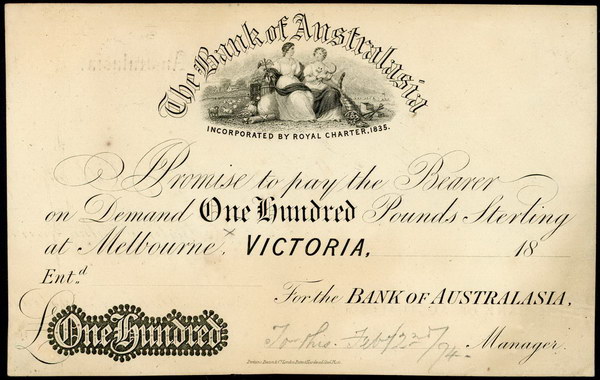 The Bank of Australasia
INCORPORATED BY ROYAL CHARTER, 1835.
I Promise to pay the Bearer
on Demand One Hundred Pounds Sterling
at Melbourne, VICTORIA, 18
Ent.d
For the BANK OF AUSTRALASIA,
£ One Hundred
To this Feby 22nd/74. Manager.